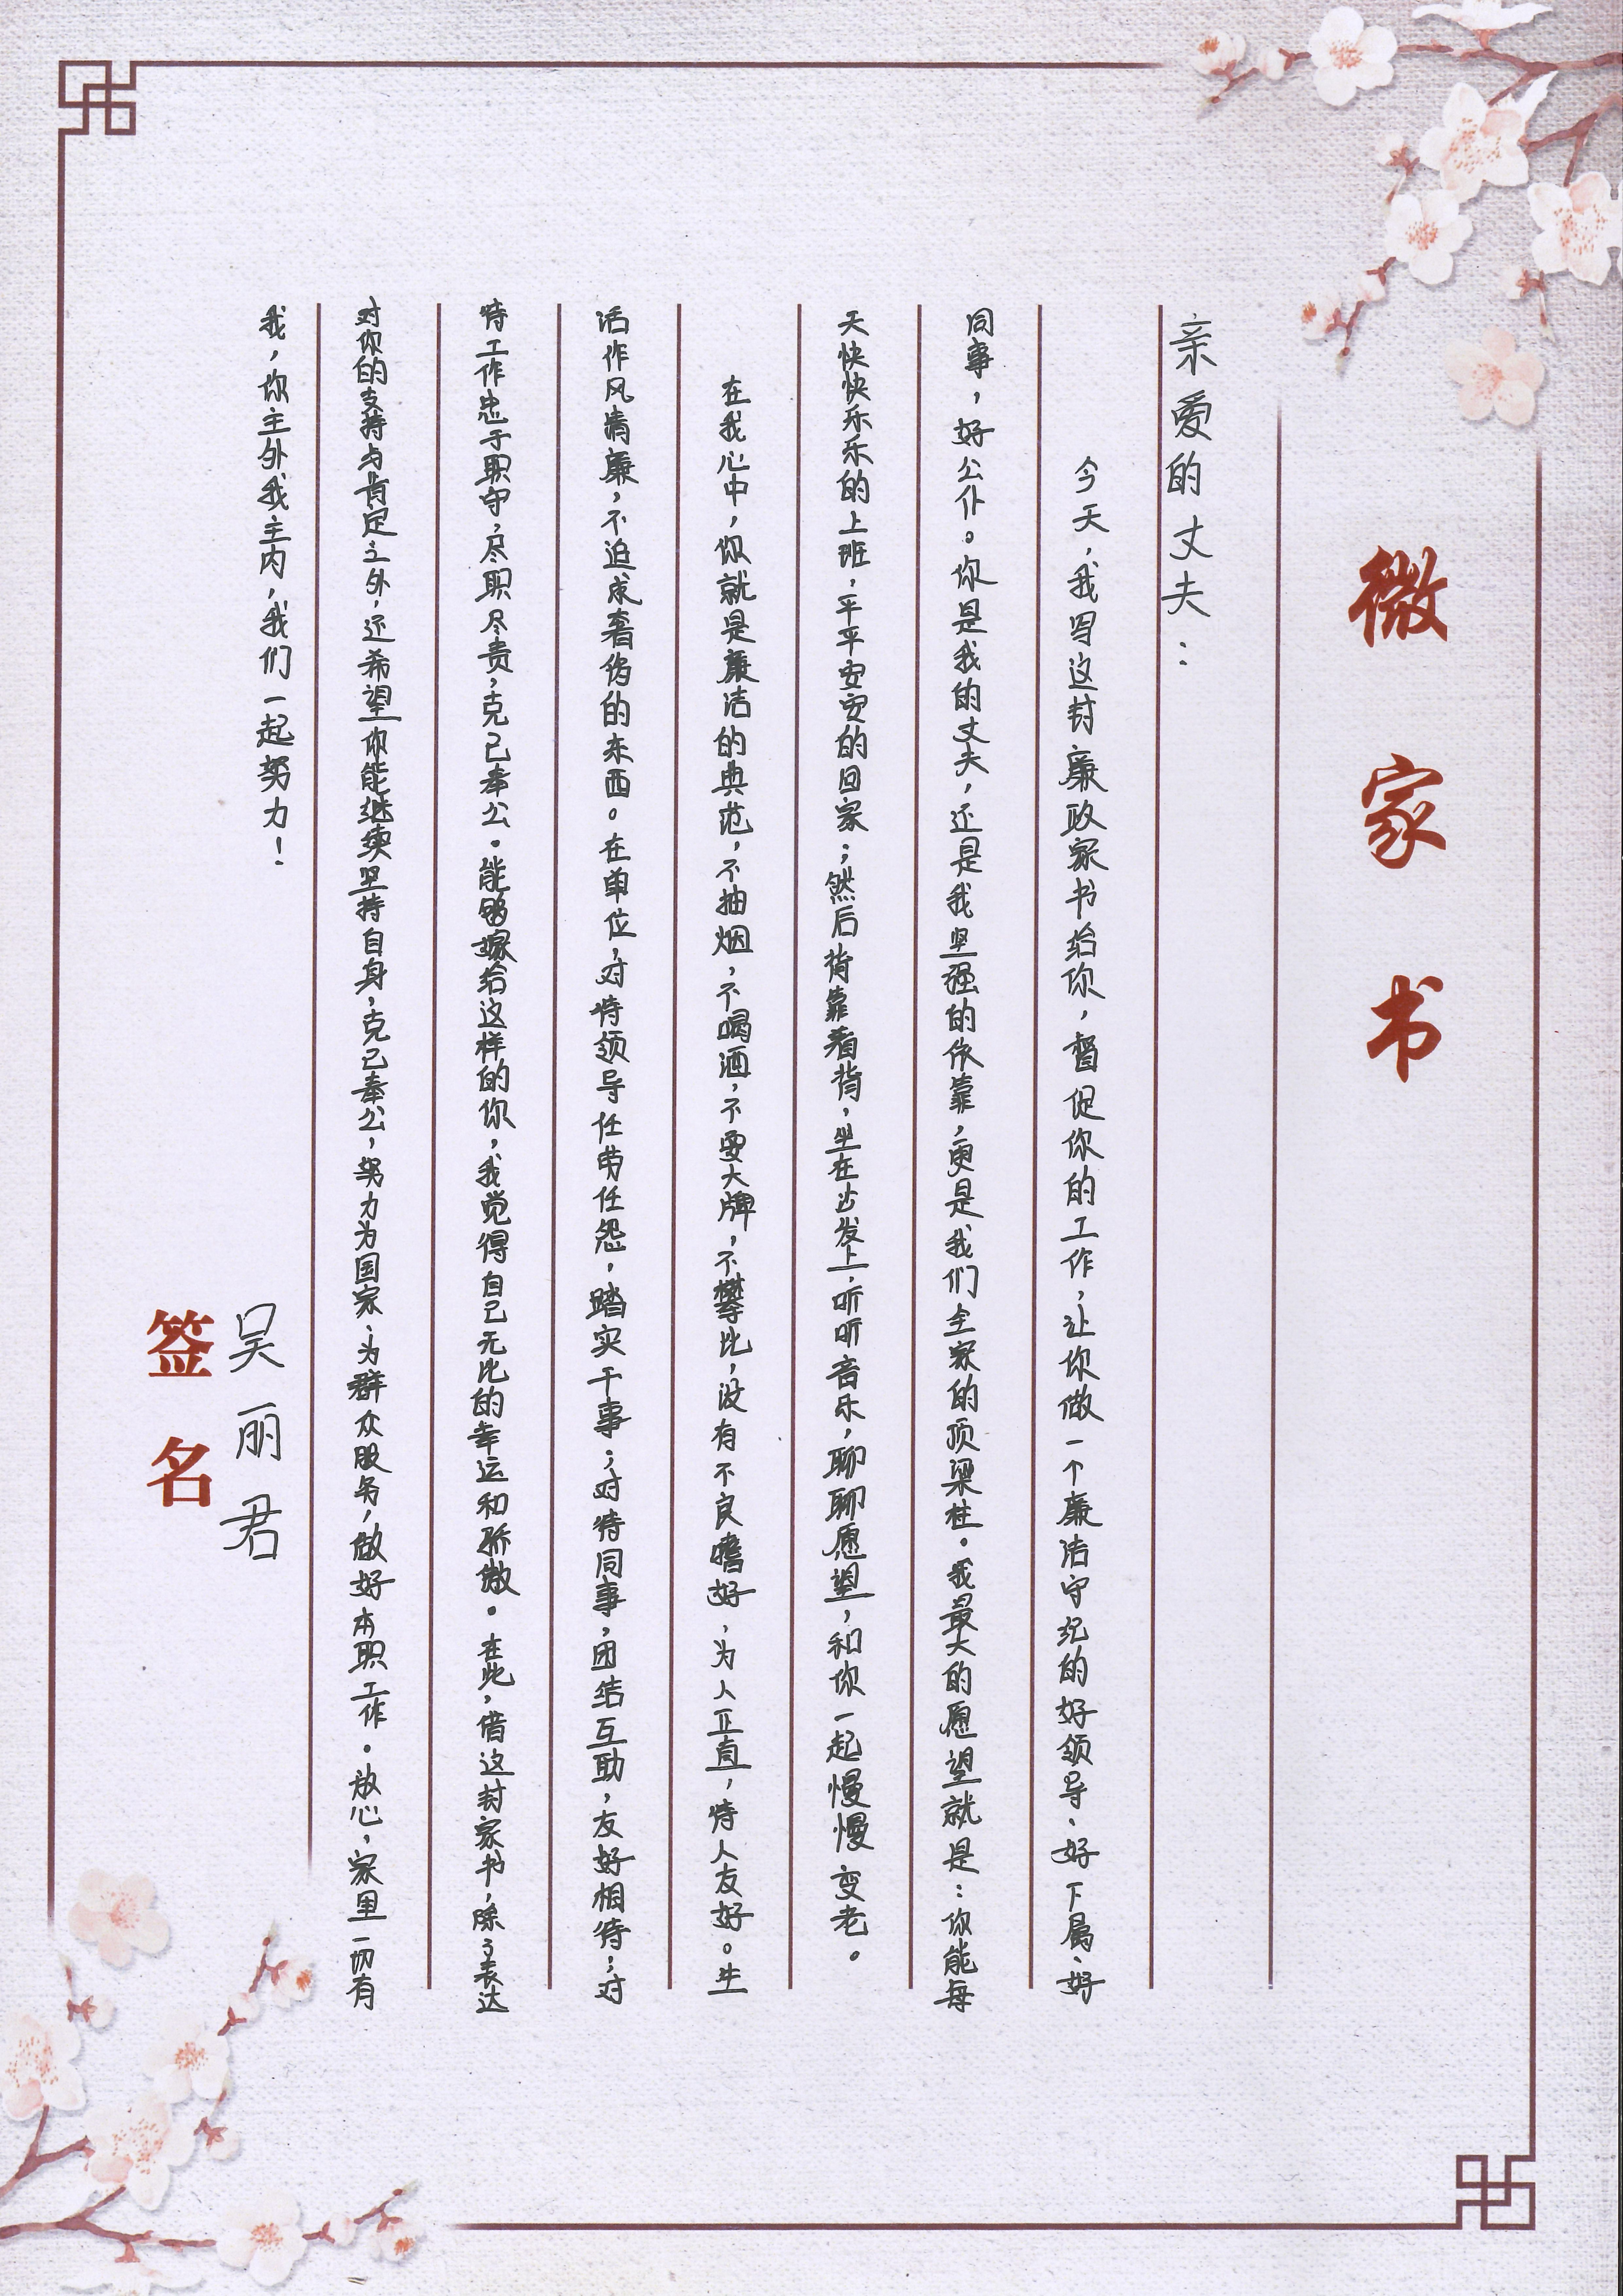 微家书
亲爱的丈夫：
今天，我写这封廉政家书给你，督促你的工作，让你做一个廉洁守纪的好领导、好下属、好
同事，好公仆。你是我的丈夫，还是我坚强的依靠，更是我们全家的顶梁柱。我最大的愿望就是：你能每
天快快乐乐的上班，平平安安的回家；然后背靠着背，坐在沙发上，听听音乐，聊聊愿望，和你一起慢慢变老。
在我心中，你就是廉洁的典范，不抽烟，不喝酒，不耍大牌，不攀比，没有不良嗜好，为人正直，待人友好。生
活作风清廉，不追求奢侈的东西。在单位，对待领导任劳任怨，踏实干事；对待同事，团结互助，友好相待；对
待工作忠于职守，尽职尽责，克己奉公。能够嫁给这样的你，我觉得自己无比的幸运和骄傲。在此，借这封家书，除了表达
对你的支持与肯定之外，还希望你能继续坚持自身，克己奉公，努力为国家、为群众服务，做好本职工作。放心，家里一切有
我，你主外我主内，我们一起努力！
吴丽君
签名